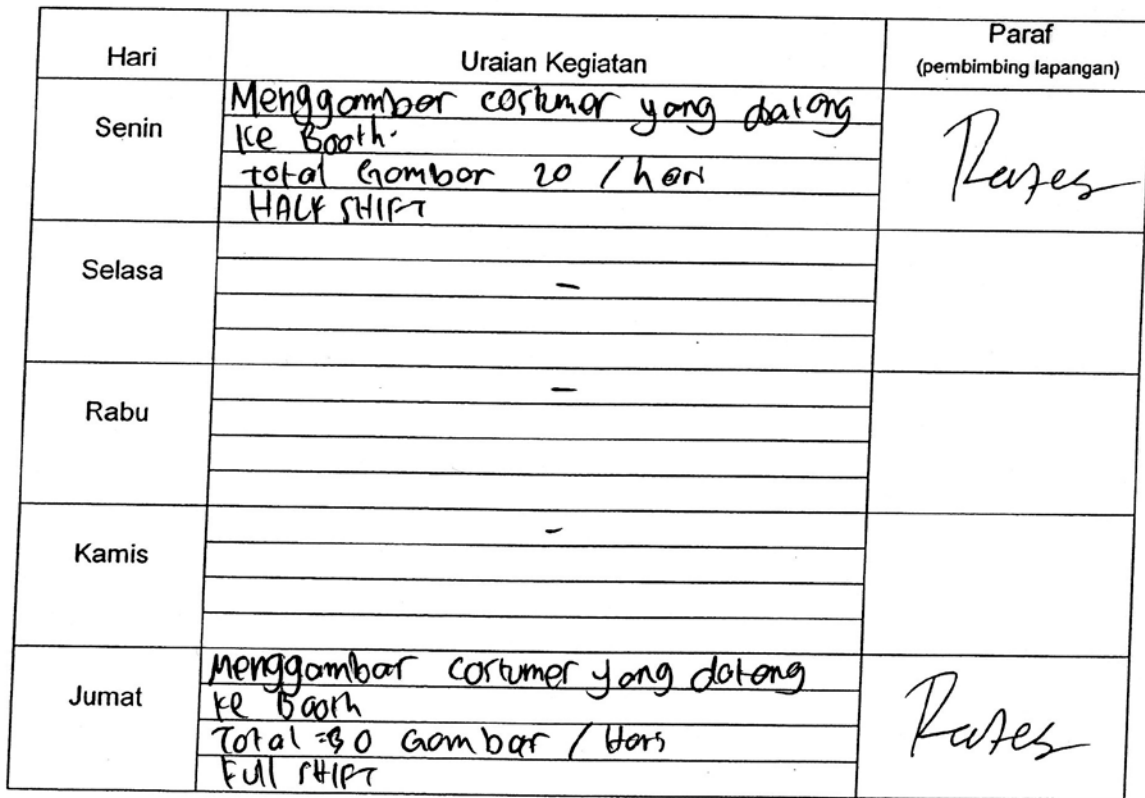 Hari Uraian Kegiatan Paraf
(pembimbing lapangan)
Senin
Menggambar costumer yang datang
ke Booth.
total Gambar 20 / hari
HALF SHIFT
Selasa
-
Rabu
-
Kamis
-
Jumat
Menggambar costumer yang datang
ke Booth
Total = 30 Gambar / Hari
Full SHIFT